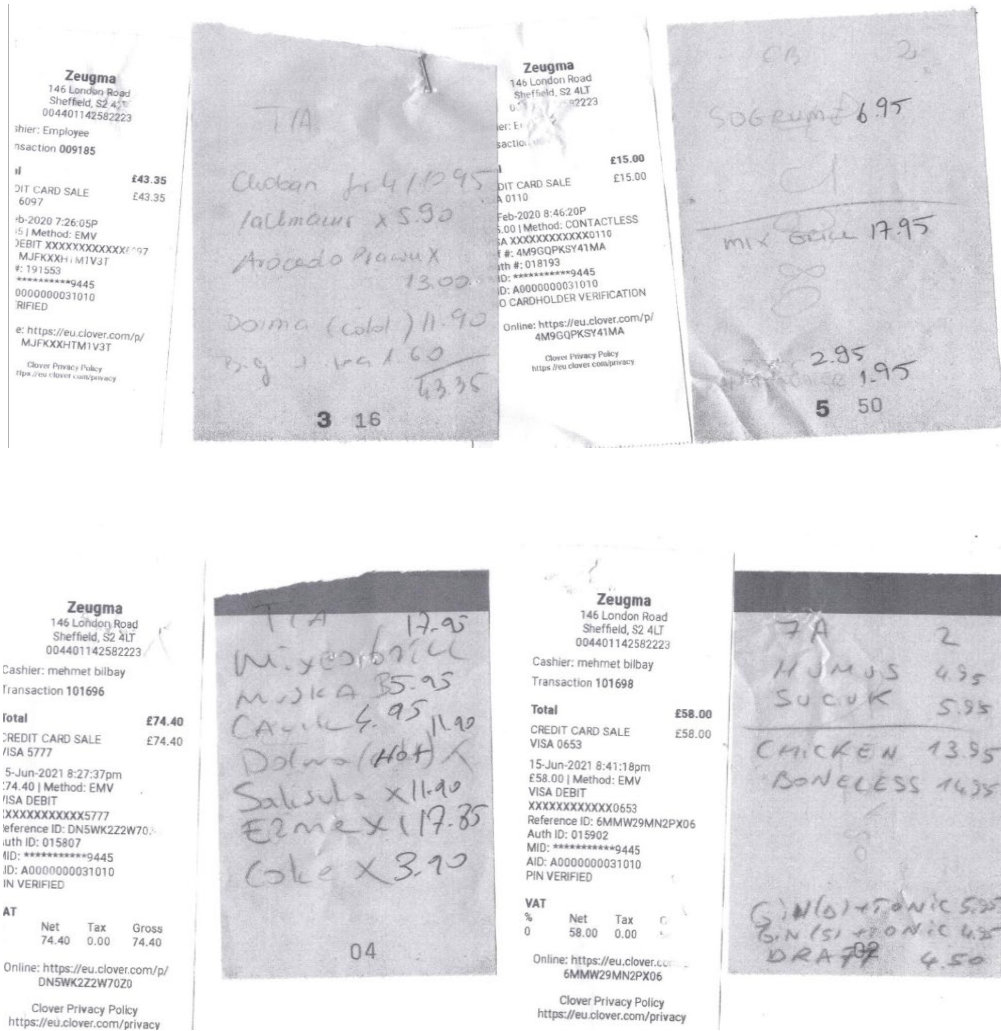 Zeugma
146 London Road
Sheffield, S2 4LT
004401142582223
shier: Employee
nsaction 009185
£43.35
DIT CARD SALE £43.35
6097
b-2020 7:26:05P
Method: EMV
DEBIT XXXXXXXXXXXX
#: 191553
**********9445
0000000031010
RIFIED
e: https://eu.clover.com/p/
MJFKXXHTM1V3T
Clover Privacy Policy
https://eu.clover.com/privacy
T/A
Choban
x 5.90
Avocado Prawn X
13.00
Dolma (Cold) 11.90
1 60
43.35
3 16
Zeugma
146 London Road
Sheffield, S2 4LT
2223
£15.00
DIT CARD SALE £15.00
A 0110
Feb-2020 8:46:20P
5.00 | Method: CONTACTLESS
SA XXXXXXXXXXXX0110
f #: 4M9GQPKSY41MA
uth #: 018193
ID: ***********9445
ID: A0000000031010
O CARDHOLDER VERIFICATION
Online: https://eu.clover.com/p/
4M9GQPKSY41MA
Clover Privacy Policy
https://eu.clover.com/privacy
2
6.95
MIX GRILL 17.95
2.95
1.95
5 50
Zeugma
146 London Road
Sheffield, S2 4LT
004401142582223
Cashier: mehmet bilbay
Transaction 101696
Total £74.40
CREDIT CARD SALE £74.40
VISA 5777
5-Jun-2021 8:27:37pm
£74.40 | Method: EMV
VISA DEBIT
XXXXXXXXXXX5777
Reference ID: DN5WK2Z2W70
Auth ID: 015807
MID: ***********9445
AID: A0000000031010
PIN VERIFIED
VAT
Net Tax Gross
74.40 0.00 74.40
Online: https://eu.clover.com/p/
DN5WK2Z2W70Z0
Clover Privacy Policy
https://eu.clover.com/privacy
T/A 17.95
5.95
4.95
11.90
Dolma (Hot) X
X 11.90
Ezme X 1 17.85
Coke X 3.90
04
Zeugma
146 London Road
Sheffield, S2 4LT
004401142582223
Cashier: mehmet bilbay
Transaction 101698
Total £58.00
CREDIT CARD SALE £58.00
VISA 0653
15-Jun-2021 8:41:18pm
£58.00 | Method: EMV
VISA DEBIT
XXXXXXXXXXXX0653
Reference ID: 6MMW29MN2PX06
Auth ID: 015902
MID: ***********9445
AID: A0000000031010
PIN VERIFIED
VAT
% Net Tax
0 58.00 0.00
Online: https://eu.clover.com
6MMW29MN2PX06
Clover Privacy Policy
https://eu.clover.com/privacy
7A 2
HUMUS 4.95
SUCUK 5.95
CHICKEN 13.95
BONELESS 14.95
GIN(D)+TONIC 5.95
GIN(S)+TONIC 4.95
DRAFT 4.50